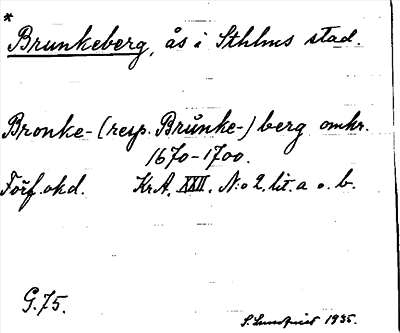 *
Brunkeberg, ås i Sthlms stad.
Bronke- (resp. Brŭnke-) berg omkr.
1670-1700.
Förf. okd. Kr A. XXII. N:o 2, lit. a o. b.
G. 75.
S. Lundquist 1935.